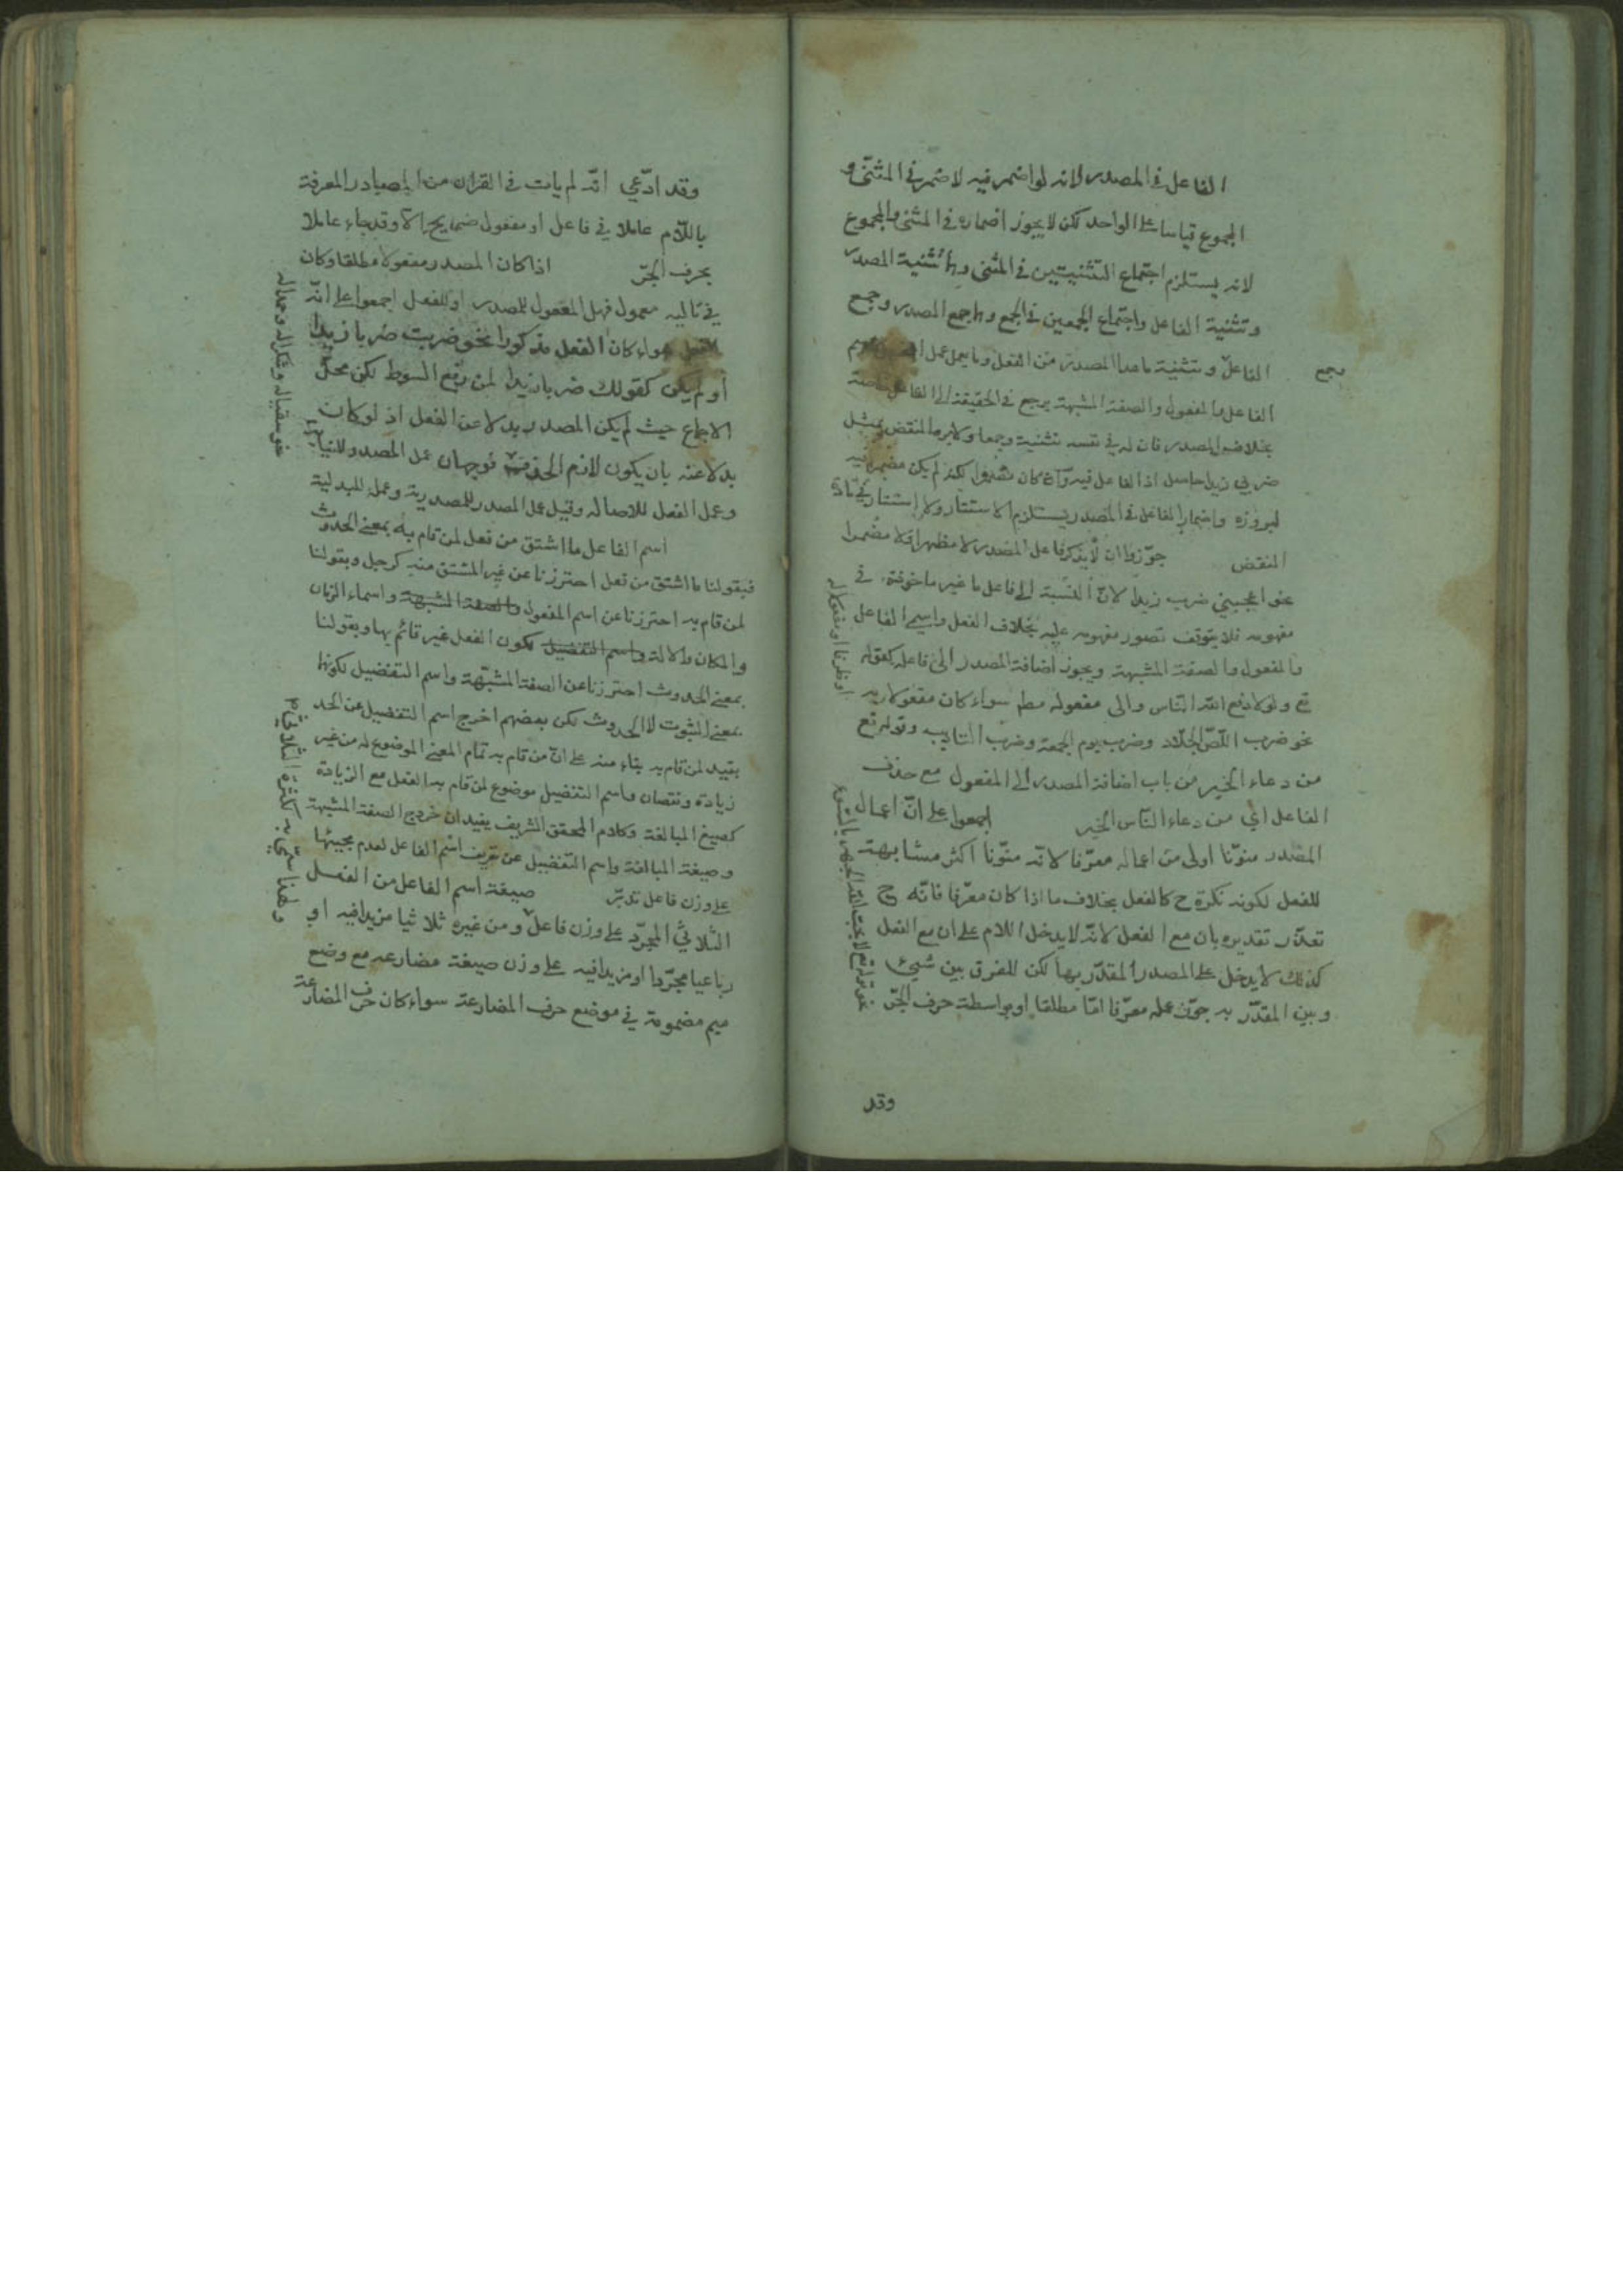 الفاعل في المصدر لانه لو اضمر فيه لاضمر في المثنّى و
المجموع قياسا على الواحد لكن لا يجوز اضماره في المثنى والمجموع
لانه يستلزم اجتماع التثنيتين في المثنى وهما تثنية المصدر
وتثنية الفاعل واجتماع الجمعين في الجمع وهما جمع المصدر وجمع
الفاعل وتثنية ما عدا المصدر من الفعل وما يعمل عمل
وجمع
الفاعل والمفعول والصفة المشبهة يرجع في الحقيقة الى الفاعل
بخلاف المصدر فان له في نفسه تثنية وجمعا ولا يرد النقض بمثل
ضربي زيدا حاصل اذ الفاعل فيه وان كان لكنه لم يكن مضمرا فيه
لبروزه واضمار الفاعل في المصدر يستلزم الاستتار ولا استتار في مادة
النقض جوّزوا ان لا يذكر فاعل المصدر لا مظهرا ولا مضمرا
نحو اعجبني ضرب زيدا لانّ النسبة الى فاعل ما غير ماخوذة في
مفهومه فلا يتوقف تصور مفهومه عليه بخلاف الفعل واسمي الفاعل
والمفعول والصفة المشبهة ويجوز اضافة المصدر الى فاعله كقوله
تع ولولا دفع الله الناس والى مفعوله مطم سواء كان مفعولا به
نحو ضرب اللصّ الجلّاد وضرب يوم الجمعة وضرب التاديب وقوله تع
من دعاء الخير من باب اضافة المصدر الى المفعول مع حذف
الفاعل اي من دعاء النّاس الخير اجمعوا على انّ اعمال
المصدر منوّنا اولى من اعماله معرّفا لانّه منوّنا اكثر مشابهة
للفعل لكونه نكرة ح كالفعل بخلاف ما اذا كان معرّفا فانّه ح
تعذّر تقديره بان مع الفعل لانّه لا يدخل اللام على ان مع الفعل
كذلك لا يدخل على المصدر المقدّر بها لكن للفرق بين شيئ
وبين المقدّر به جوّز عمله معرّفا امّا مطلقا او بواسطة حرف الجرّ
او ظرفا او مفعولا له
نحو قوله تع لا يحب الله الجهر بالسوء
وقد
وقد ادّعي انّه لم يات في القران من المصادر المعرفة
باللّام عاملا في فاعل او مفعول صريح الّا وقد جاء عاملا
بحرف الجرّ اذا كان المصدر مفعولا مطلقا وكان
في تاليه معمول فهل المعمول للمصدر او للفعل اجمعوا على انّه
للفعل سواء كان الفعل مذكورا نحو ضربت ضربا زيدا
أو لم يكن كقولك ضربا زيدا لمن رفع السوط لكن محلّ
الاجماع حيث لم يكن المصدر بدلا عن الفعل اذ لو كان
بدلا عنه بان يكون لازم الحذف فوجهان عمل المصدر للنيابة
وعمل الفعل للاصالة وقيل عمل المصدر للمصدرية وعمله للبدلية
نحو سقيا له وشكرا له وحمدا له
اسم الفاعل ما اشتق من فعل لمن قام به بمعنى الحدوث
فبقولنا ما اشتق من فعل احترزنا عن غير المشتق منه كرجل وبقولنا
لمن قام به احترزنا عن اسم المفعول والصفة المشبهة واسماء الزمان
والمكان والالة واسم التفضيل لكون الفعل غير قائم بها وبقولنا
بمعنى الحدوث احترزنا عن الصفة المشبّهة واسم التفضيل لكونها
بمعنى الثبوت لا الحدوث لكن بعضهم اخرج اسم التفضيل عن الحد
بقيد لمن قام به بناء منه على انّ من قام به تمام المعنى الموضوع له من غير
زيادة ونقصان واسم التفضيل موضوع لمن قام به الفعل مع الزيادة
كصيغ المبالغة وكلام المحقق الشريف يفيد ان خروج الصفة المشبهة
وصيغة المبالغة واسم التفضيل عن تعريف اسم الفاعل لعدم مجيئها
على وزن فاعل تدبّر صيغة اسم الفاعل من الفعل
الثلاثي المجرّد على وزن فاعل ومن غيره ثلاثيا مزيدا فيه او
رباعيا مجرّدا او مزيدا فيه على وزن صيغة مضارعه مع وضع
ميم مضمومة في موضع حرف المضارعة سواء كان حرف المضارعة